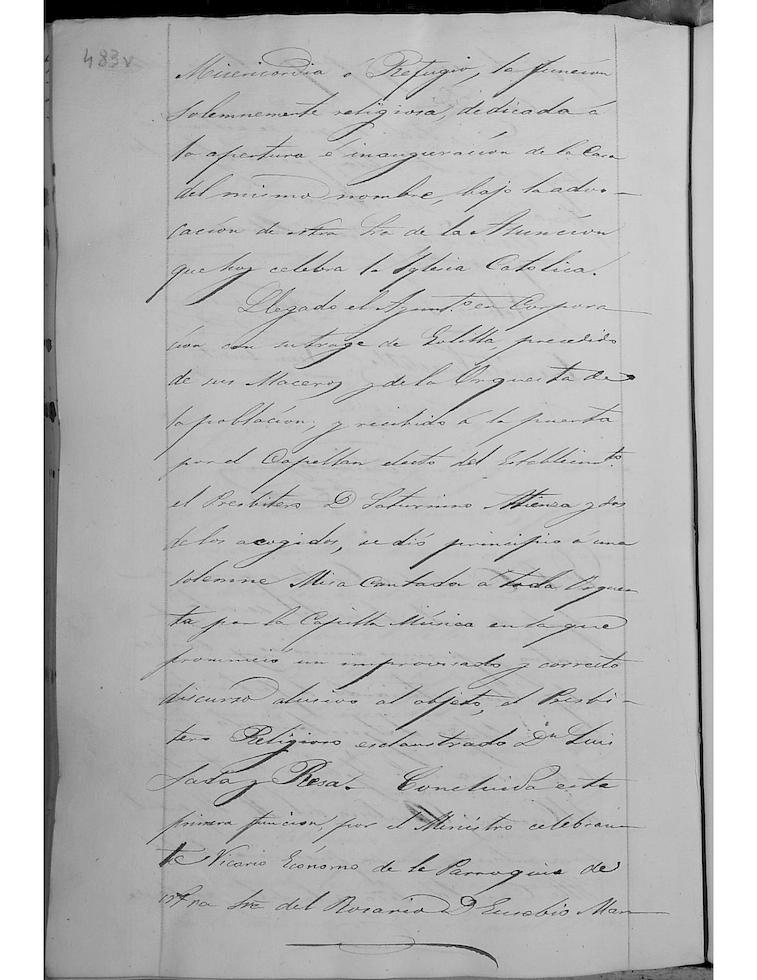 483v
Misericordia o Refugio, la funcion
solemnemente religiosa, dedicada á
la apertura é inauguración de la Casa
del mismo nombre, bajo la advo-
cación de ntra Sra de la Asunción
que hoy celebra la Iglesia Católica.
Llegado el Ayunt.o en Corpora
ción con su trage de Golilla precedido
de sus Maceros y de la Orquesta de
la población, y recibido á la puerta
por el Capellan electo del Establecimto.
el Presbitero D Saturnino Atienza y dos
de los acogidos, se dió principio á una
solemne Misa Cantada á toda Orques
ta por la Capilla Música en la que
pronunció un improvisado y correcto
discurso alusivo al objeto, el Presbi-
tero Religioso esclaustrado Dn Luis
Sala y Resa. Concluida esta
primera funcion, por el Ministro celebran
te Vicario Ecónomo de la Parroquia de
ntra Sra del Rosario D Eusebio Mar